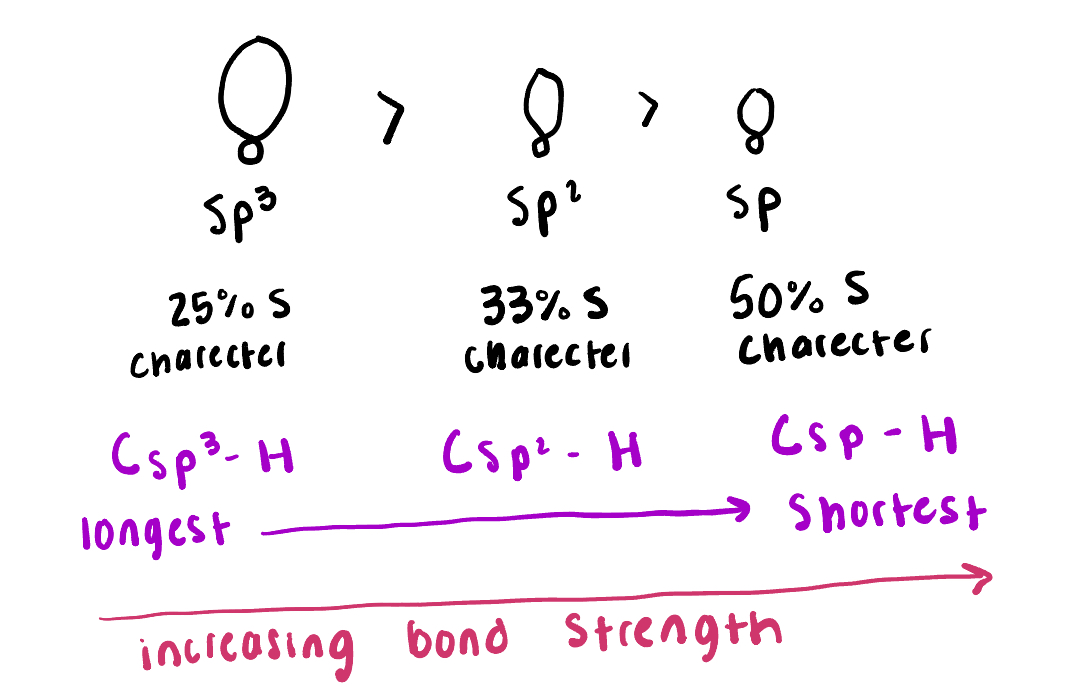 > >
sp³ sp² sp
25% S 33% S 50% S
charecter charecter charecter
Csp³- H Csp² - H Csp - H
longest shortest
increasing bond strength